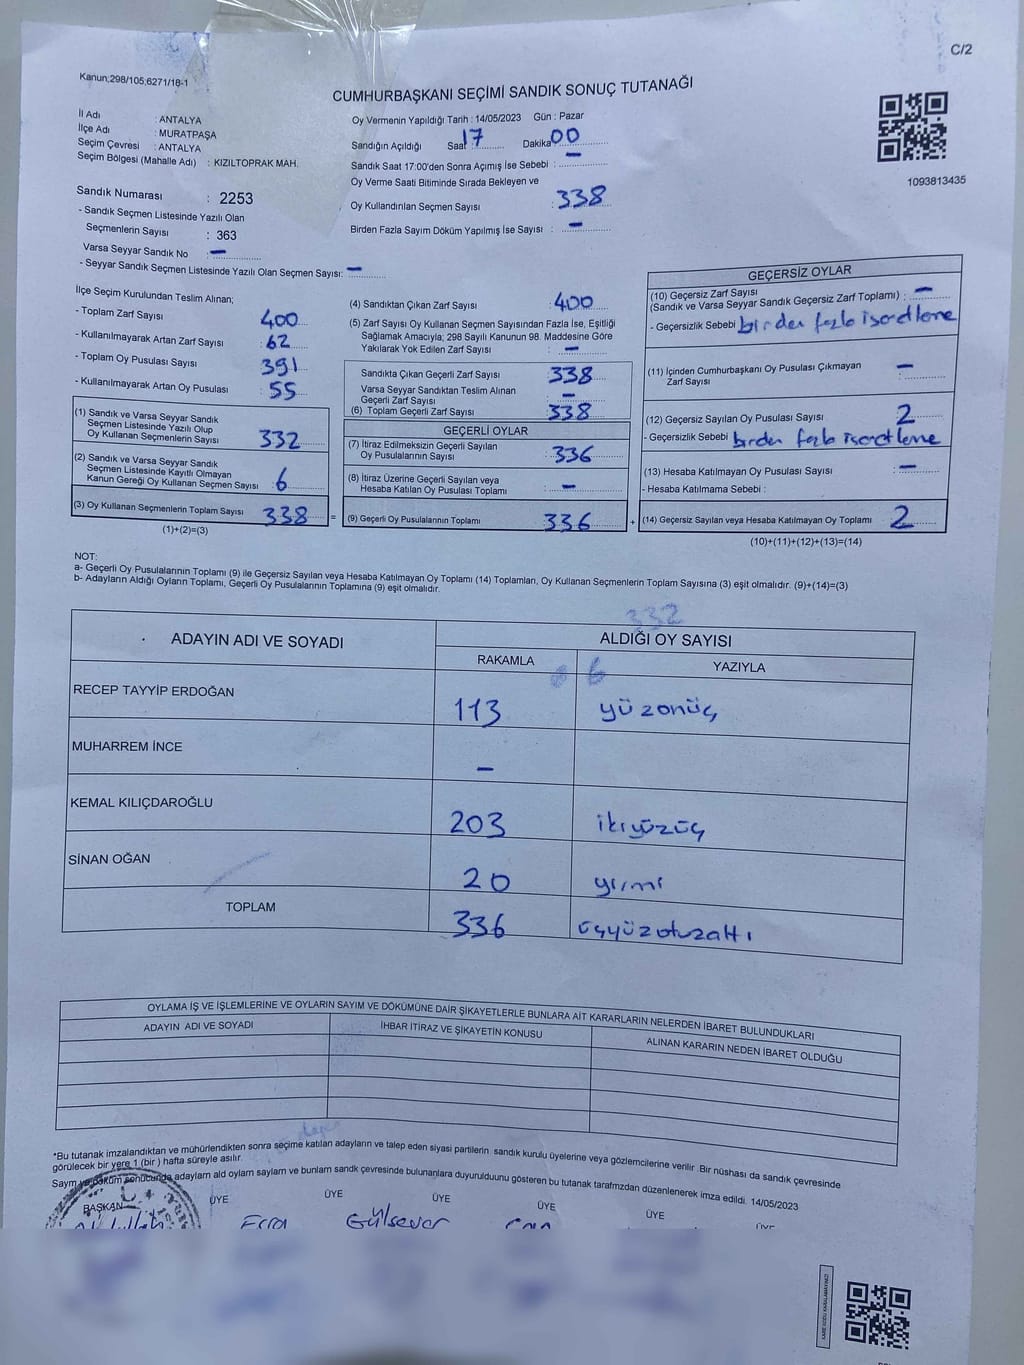 C/2
Kanun;298/105;6271/18-1
CUMHURBAŞKANI SEÇİMİ SANDIK SONUÇ TUTANAĞI
İl Adı : ANTALYA
İlçe Adı : MURATPAŞA
Seçim Çevresi : ANTALYA
Seçim Bölgesi (Mahalle Adı) : KIZILTOPRAK MAH.
Oy Vermenin Yapıldığı Tarih : 14/05/2023 Gün : Pazar
Sandığın Açıldığı Saat 17 Dakika 00
Sandık Saat 17:00'den Sonra Açımış İse Sebebi : –
Oy Verme Saati Bitiminde Sırada Bekleyen ve
Oy Kullandırılan Seçmen Sayısı : 338
Birden Fazla Sayım Döküm Yapılmış İse Sayısı : –
1093813435
Sandık Numarası : 2253
- Sandık Seçmen Listesinde Yazılı Olan
Seçmenlerin Sayısı : 363
Varsa Seyyar Sandık No : –
- Seyyar Sandık Seçmen Listesinde Yazılı Olan Seçmen Sayısı: –
İlçe Seçim Kurulundan Teslim Alınan;
- Toplam Zarf Sayısı : 400
- Kullanılmayarak Artan Zarf Sayısı : 62
- Toplam Oy Pusulası Sayısı : 391
- Kullanılmayarak Artan Oy Pusulası : 55
(1) Sandık ve Varsa Seyyar Sandık
Seçmen Listesinde Yazılı Olup
Oy Kullanan Seçmenlerin Sayısı : 332
(2) Sandık ve Varsa Seyyar Sandık
Seçmen Listesinde Kayıtlı Olmayan
Kanun Gereği Oy Kullanan Seçmen Sayısı : 6
(3) Oy Kullanan Seçmenlerin Toplam Sayısı : 338 =
(1)+(2)=(3)
(4) Sandıktan Çıkan Zarf Sayısı : 400
(5) Zarf Sayısı Oy Kullanan Seçmen Sayısından Fazla İse, Eşitliği
Sağlamak Amacıyla; 298 Sayılı Kanunun 98. Maddesine Göre
Yakılarak Yok Edilen Zarf Sayısı : –
Sandıkta Çıkan Geçerli Zarf Sayısı : 338
Varsa Seyyar Sandıktan Teslim Alınan
Geçerli Zarf Sayısı : –
(6) Toplam Geçerli Zarf Sayısı : 338
GEÇERLİ OYLAR
(7) İtiraz Edilmeksizin Geçerli Sayılan
Oy Pusulalarının Sayısı : 336
(8) İtiraz Üzerine Geçerli Sayılan veya
Hesaba Katılan Oy Pusulası Toplamı : –
(9) Geçerli Oy Pusulalarının Toplamı : 336 +
GEÇERSİZ OYLAR
(10) Geçersiz Zarf Sayısı
(Sandık ve Varsa Seyyar Sandık Geçersiz Zarf Toplamı) : –
- Geçersizlik Sebebi birden fazla isaretleme
(11) İçinden Cumhurbaşkanı Oy Pusulası Çıkmayan
Zarf Sayısı –
(12) Geçersiz Sayılan Oy Pusulası Sayısı : 2
- Geçersizlik Sebebi birden fazla isaretleme
(13) Hesaba Katılmayan Oy Pusulası Sayısı : –
- Hesaba Katılmama Sebebi :
(14) Geçersiz Sayılan veya Hesaba Katılmayan Oy Toplamı : 2
(10)+(11)+(12)+(13)=(14)
NOT:
a- Geçerli Oy Pusulalarının Toplamı (9) ile Geçersiz Sayılan veya Hesaba Katılmayan Oy Toplamı (14) Toplamları, Oy Kullanan Seçmenlerin Toplam Sayısına (3) eşit olmalıdır. (9)+(14)=(3)
b- Adayların Aldığı Oyların Toplamı, Geçerli Oy Pusulalarının Toplamına (9) eşit olmalıdır.
332
ADAYIN ADI VE SOYADI ALDIĞI OY SAYISI
RAKAMLA 6 YAZIYLA
RECEP TAYYİP ERDOĞAN 113 yüzonüç
MUHARREM İNCE –
KEMAL KILIÇDAROĞLU 203 ikiyüzüç
SİNAN OĞAN 20 yirmi
TOPLAM 336 üçyüzotuzaltı
OYLAMA İŞ VE İŞLEMLERİNE VE OYLARIN SAYIM VE DÖKÜMÜNE DAİR ŞİKAYETLERLE BUNLARA AİT KARARLARIN NELERDEN İBARET BULUNDUKLARI
ADAYIN ADI VE SOYADI İHBAR İTİRAZ VE ŞİKAYETİN KONUSU ALINAN KARARIN NEDEN İBARET OLDUĞU
*Bu tutanak imzalandıktan ve mühürlendikten sonra seçime katılan adayların ve talep eden siyasi partilerin sandık kurulu üyelerine veya gözlemcilerine verilir. Bir nüshası da sandık çevresinde
görülecek bir yere 1 (bir ) hafta süreyle asılır.
Sayım ve döküm sonucunda adayların ald oyların sayların ve bunların sandk çevresinde bulunanlara duyurulduunu gösteren bu tutanak tarafmzdan düzenlenerek imza edildi. 14/05/2023
BAŞKAN ÜYE ÜYE ÜYE ÜYE ÜYE ÜYE
Esra Gülsever